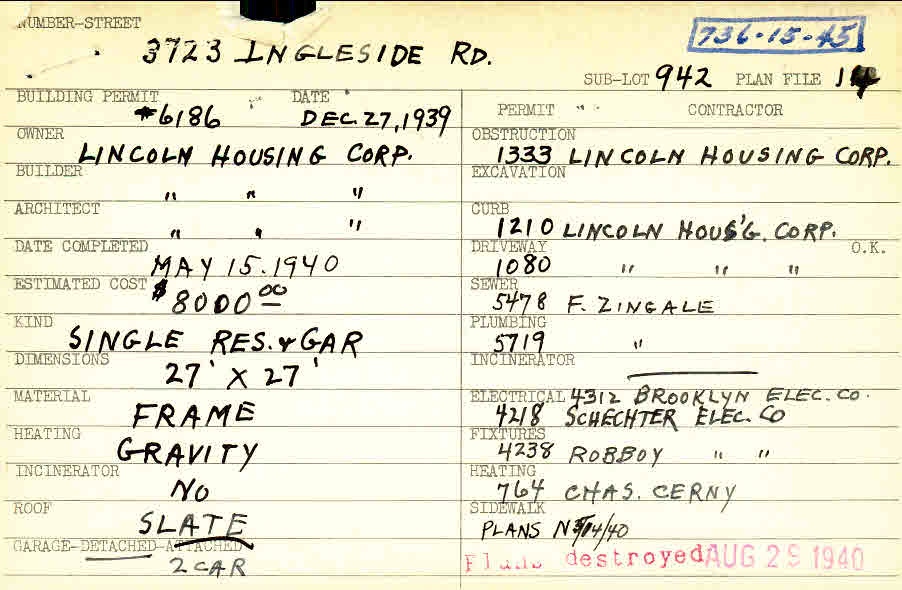 NUMBER-STREET
3723 INGLESIDE RD.
736-15-45
SUB-LOT 942 PLAN FILE
BUILDING PERMIT DATE
#6186 DEC. 27, 1939
OWNER
LINCOLN HOUSING CORP.
BUILDER
" " "
ARCHITECT
" " "
DATE COMPLETED
MAY 15. 1940
ESTIMATED COST
$8000 00
KIND
SINGLE RES. & GAR
DIMENSIONS
27' X 27'
MATERIAL
FRAME
HEATING
GRAVITY
INCINERATOR
NO
ROOF
SLATE
GARAGE-DETACHED-ATTACHED
2 CAR
PERMIT CONTRACTOR
OBSTRUCTION
1333 LINCOLN HOUSING CORP.
EXCAVATION
CURB
1210 LINCOLN HOUS'G. CORP.
DRIVEWAY O.K.
1080 " " "
SEWER
5478 F. ZINGALE
PLUMBING
5719 "
INCINERATOR
ELECTRICAL 4312 BROOKLYN ELEC. CO.
4218 SCHECHTER ELEC. CO
FIXTURES
4238 ROBBOY " "
HEATING
764 CHAS. CERNY
SIDEWALK
PLANS N 5/14/40
Plans destroyed AUG 29 1940